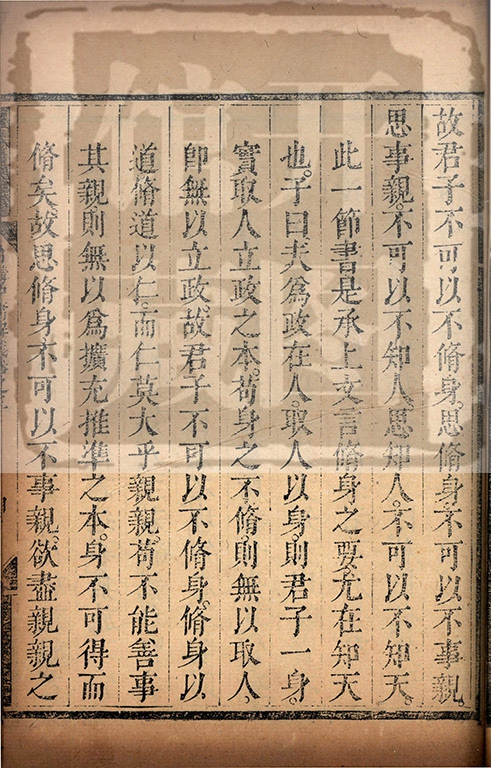 故君子不可以不脩身。思脩身。不可以不事親。
思事親。不可以不知人。思知人。不可以不知天。
此一節書是承上文言脩身之要。尤在知天
也。子曰。夫爲政在人。取人以身。則君子一身。
實取人立政之本。苟身之不脩。則無以取人。
卽無以立政。故君子不可以不脩身。脩身以
道。脩道以仁。而仁莫大乎親親。苟不能善事
其親。則無以爲擴充推準之本。身不可得而
脩矣。故思脩身。不可以不事親。欲盡親親之